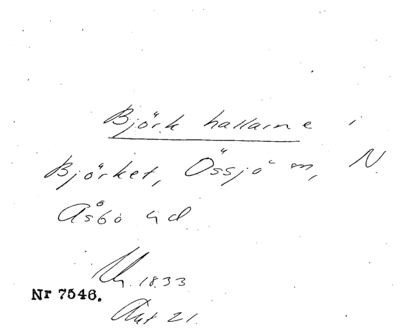 Björkhallarne i
Björket, Össjö sn, N.
Åsbo hd
1833
Nr 7546.
Akt 21.